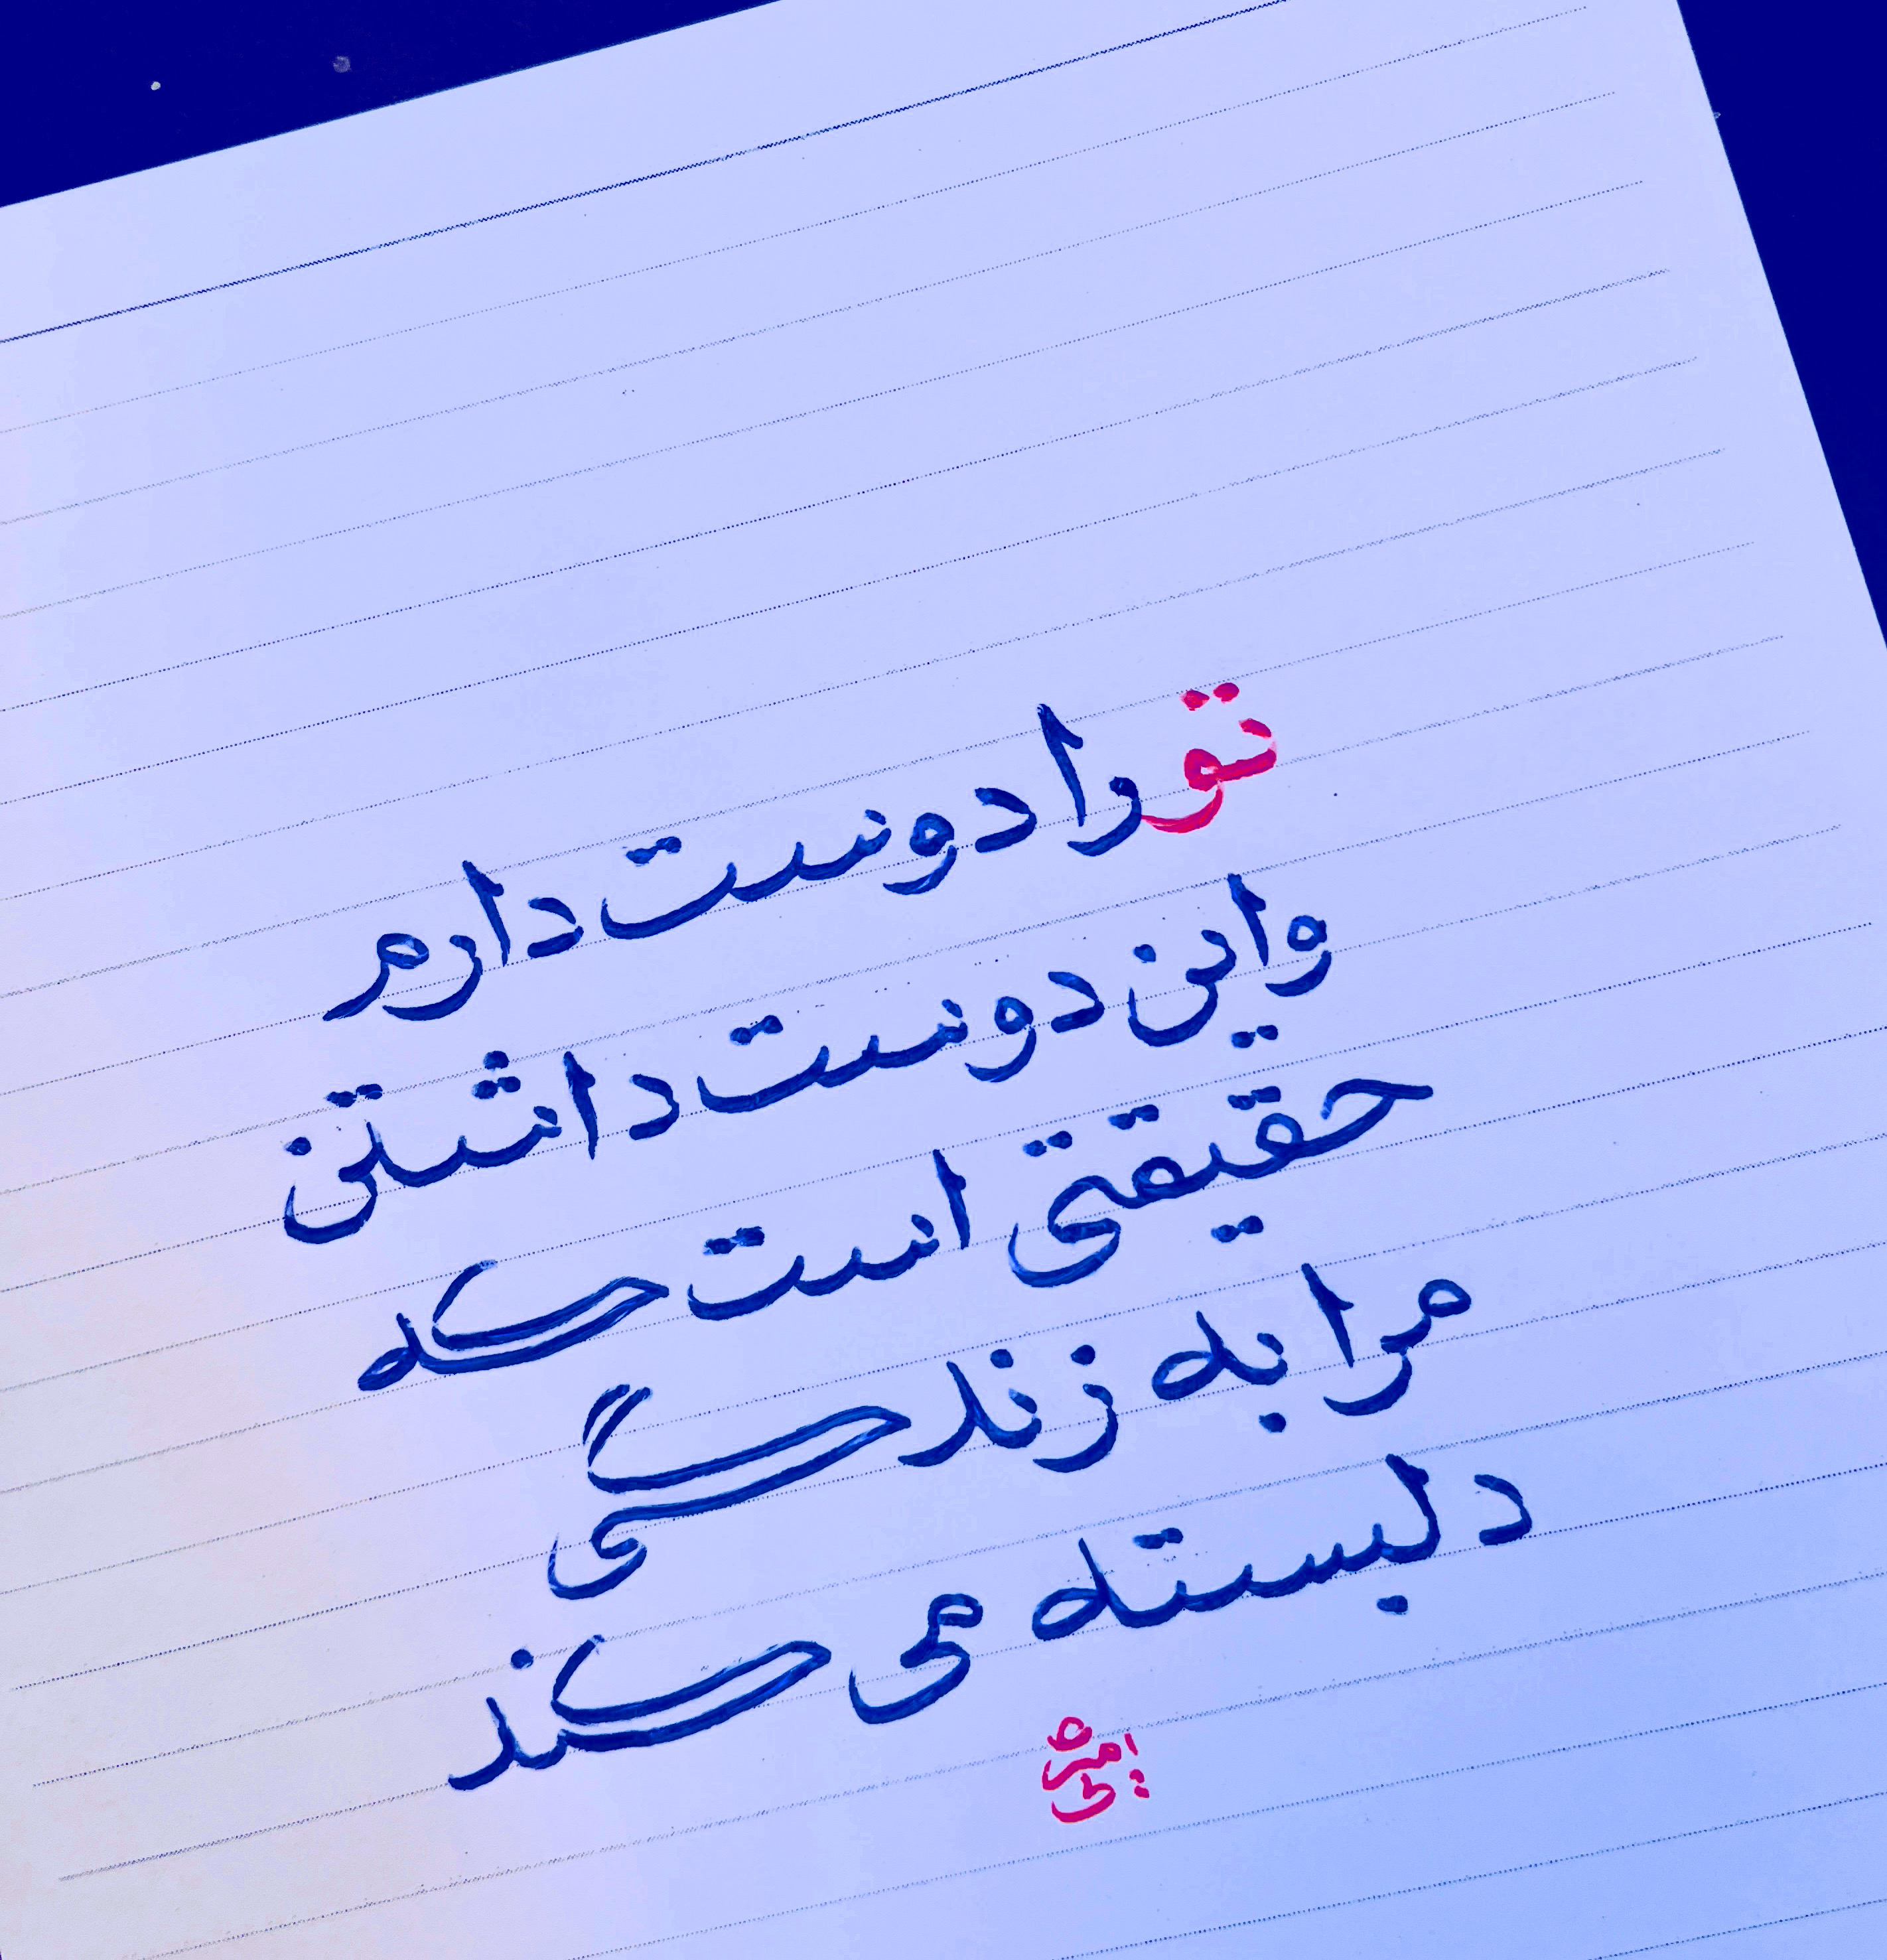 تو را دوست دارم
و این دوست داشتن
حقیقتی است که
مرا به زندگی
دلبسته می کند